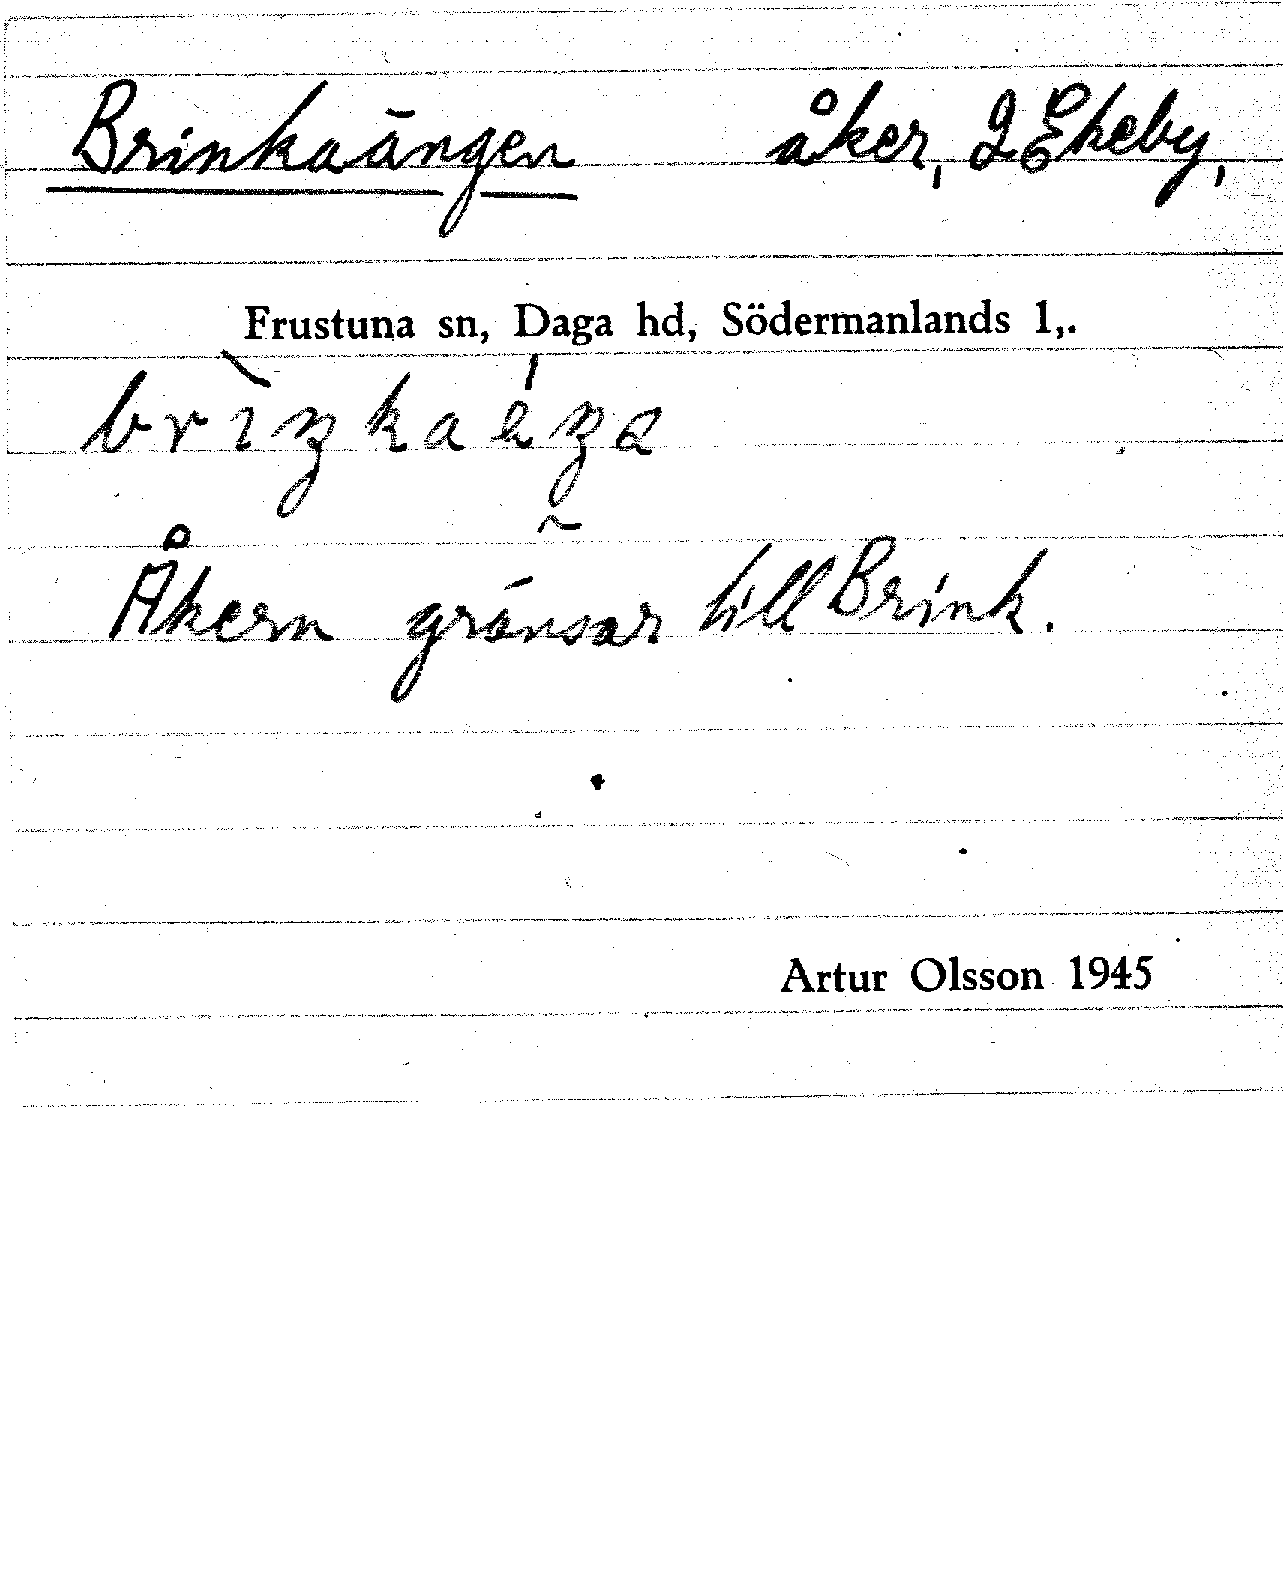 Brinkaängen åker, 2 Ekeby,
Frustuna sn, Daga hd, Södermanlands l,.
Åkern gränsar till Brink.
Artur Olsson 1945